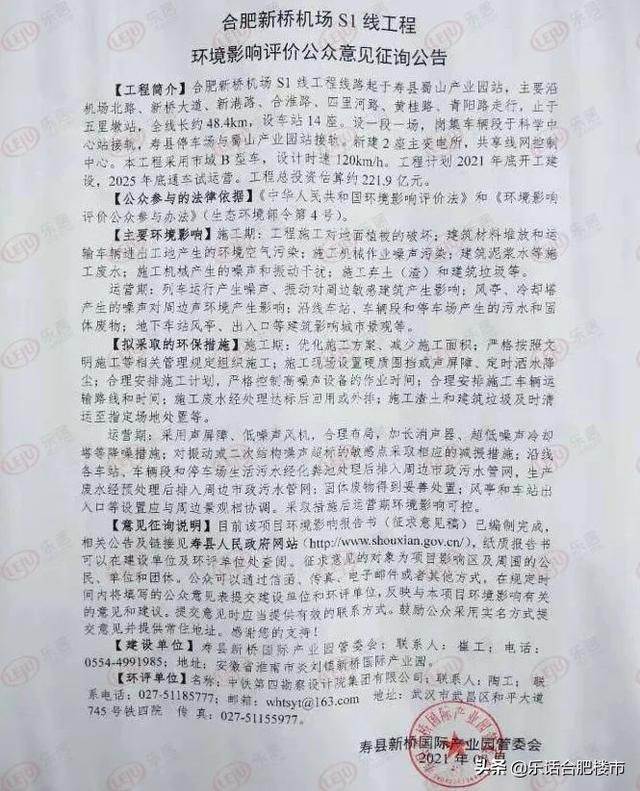 合肥新桥机场 S1 线工程
环境影响评价公众意见征询公告
【工程简介】合肥新桥机场 S1 线工程线路起于寿县蜀山产业园站，主要沿
机场北路、新桥大道、新港路、合淮路、四里河路、黄桂路、青阳路走行，止于
五里墩站，全线长约 48.4km，设车站 14 座。设一段一场，岗集车辆段于科学中
心站接轨，寿县停车场与蜀山产业园站接轨。新建 2 座主变电所，共享线网控制
中心。本工程采用市域 B 型车，设计时速 120km/h。工程计划 2021 年底开工建
设，2025 年底通车试运营。工程总投资估算约 221.9 亿元。
【公众参与的法律依据】《中华人民共和国环境影响评价法》和《环境影响
评价公众参与办法》（生态环境部令第 4 号）。
【主要环境影响】施工期：工程施工对地面植被的破坏；建筑材料堆放和运
输车辆进出工地产生的环境空气污染；施工机械作业噪声污染；建筑泥浆水等施
工废水；施工机械产生的噪声和振动干扰；施工弃土（渣）和建筑垃圾等。
运营期：列车运行产生噪声、振动对周边敏感建筑产生影响；风亭、冷却塔
产生的噪声对周边声环境产生影响；沿线车站、车辆段和停车场产生的污水和固
体废物；地下车站风亭、出入口等建筑影响城市景观等。
【拟采取的环保措施】施工期：优化施工方案、减少施工面积；严格按照文
明施工等相关管理规定组织施工；施工现场设置硬质围挡或声屏障、定时洒水降
尘；合理安排施工计划，严格控制高噪声设备的作业时间；合理安排施工车辆运
输路线和时间；施工废水经处理达标后回用或外排；施工渣土和建筑垃圾及时清
运至指定场地处置等。
运营期：采用声屏障、低噪声风机，合理布局，加长消声器、超低噪声冷却
塔等降噪措施；对振动或二次结构噪声超标的敏感点采取相应的减振措施；沿线
各车站、车辆段和停车场生活污水经化粪池处理后排入周边市政污水管网，生产
废水经预处理后排入周边市政污水管网；固体废物得到妥善处置；风亭和车站出
入口等设置应与周边景观相协调。采取措施后运营期环境影响可控。
【意见征询说明】目前该项目环境影响报告书（征求意见稿）已编制完成，
相关公告及链接见寿县人民政府网站（http://www.shouxian.gov.cn/），纸质报告书
可以在建设单位及环评单位处查阅。征求意见的对象为项目影响区及周围的公
民、单位和团体。公众可以通过信函、传真、电子邮件或者其他方式，在规定时
间内将填写的公众意见表提交建设单位和环评单位，反映与本项目环境影响有关
的意见和建议。提交意见时应当提供有效的联系方式。鼓励公众采用实名方式提
交意见并提供常住地址。感谢您的支持！
【建设单位】寿县新桥国际产业园管委会；联系人：崔工；电话：
0554-4991985；地址：安徽省淮南市炎刘镇新桥国际产业园。
【环评单位】名称：中铁第四勘察设计院集团有限公司；联系人：陶工； 联
系电话：027-51185777；邮箱：whtsyt@163.com 地址：武汉市武昌区和平大道
745 号铁四院 传 真：027-51155977。
寿县新桥国际产业园管委会
2021 年
头条 @乐话合肥楼市